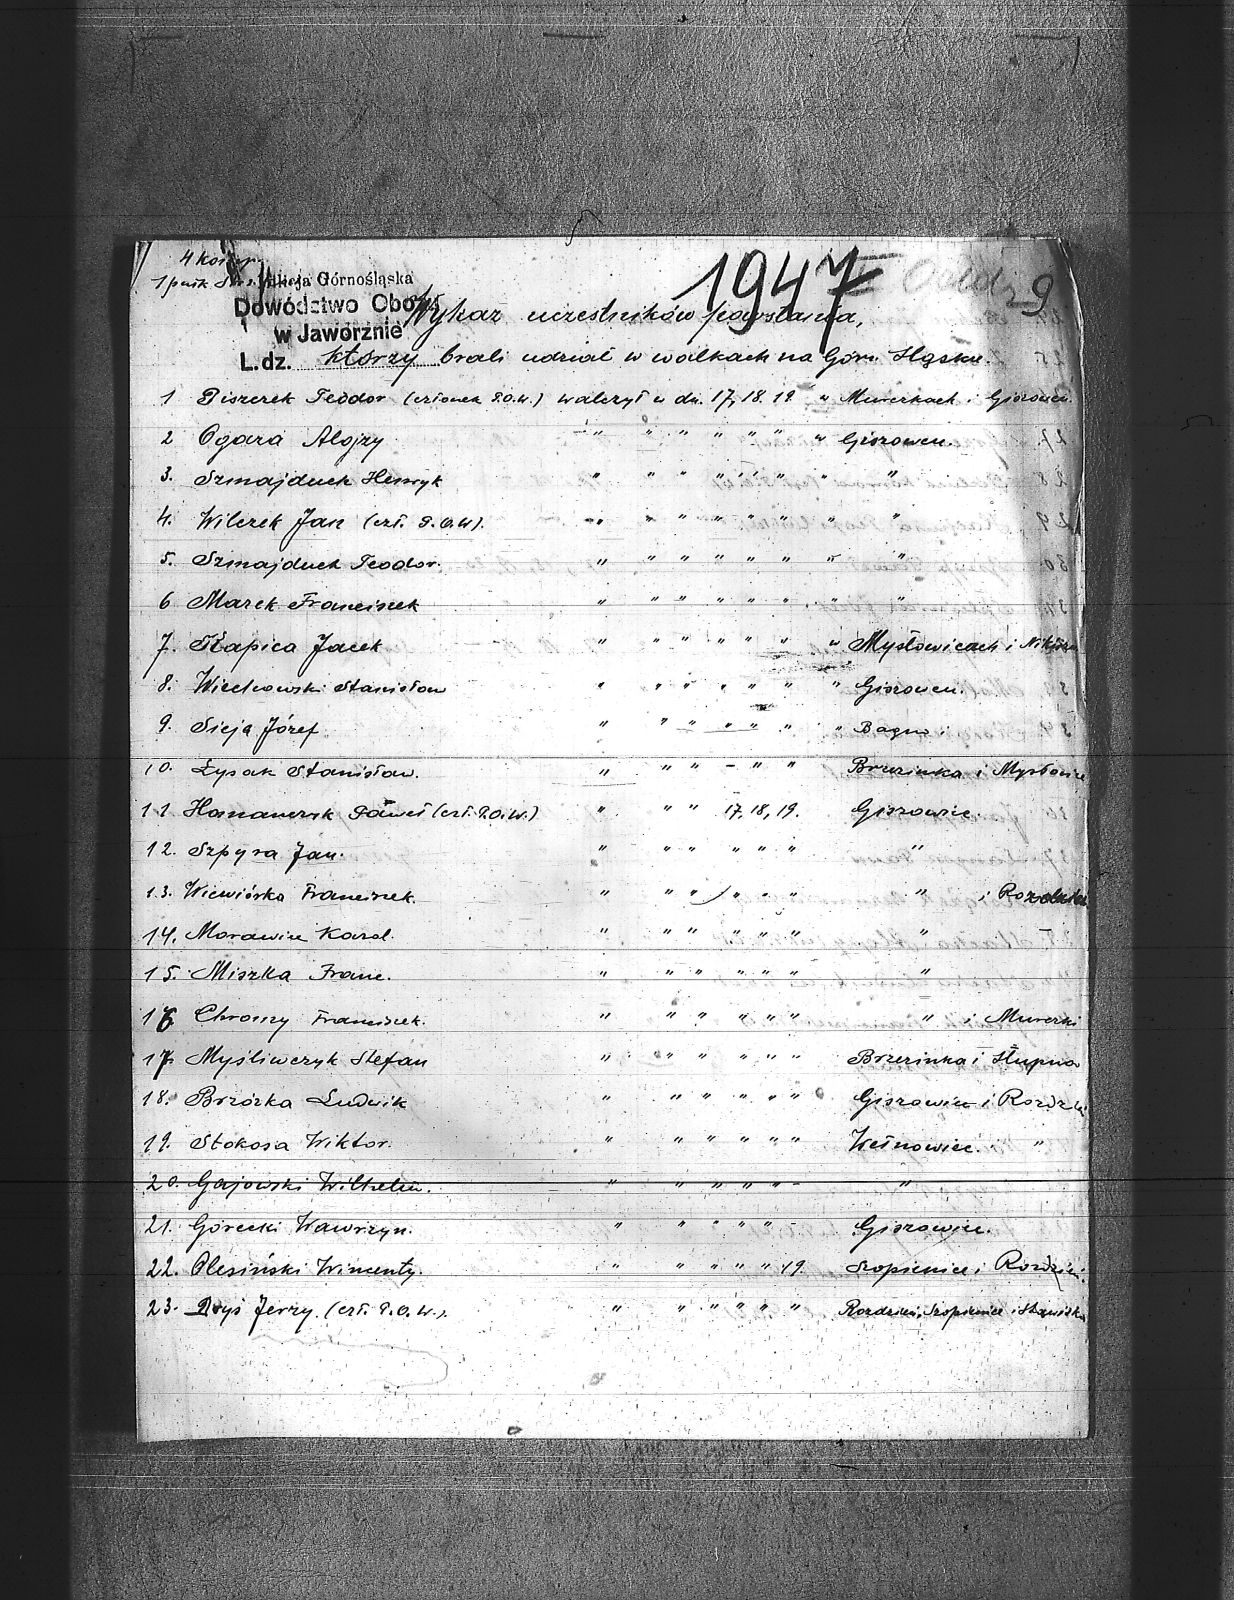 4 komp.
1 pułk
Górnośląska
1947
9
Dowództwo Obozu
w Jaworznie
L. dz.
Wykaz uczestników powstania,
którzy brali udział w walkach na Górn. Śląsku.
1 Piszczek Teodor (członek P.O.W.) walczył w dn. 17, 18. 19. w Murckach i Giszowcu.
2 Ogaza Alojzy " " " " " " " Giszowcu.
3. Szmajduch Henryk " " " " " " " "
4. Wilczek Jan (czł. P.O.W). " " " " " " " "
5. Szmajduch Teodor. " " " " " " " "
6 Marek Franciszek " " " " " " " "
7. Kapica Jacek " " " " " " " Mysłowicach i
8. Wiechowski Stanisław " " " " " " " Giszowcu.
9. Sieja Józef " " " " " " " Bagno
10. Łysak Stanisław. " " " – " " Brzezinka i Mysłowice
11. Paweł (czł. P.O.W.) " " " 17, 18, 19. Giszowiec.
12. Szpyra Jan. " " " " " " "
13. Wiewiórka Franciszek. " " " " " " " i
14. Morawiec Karol. " " " " " " "
15. Miszka Franc. " " " " " " "
16 Chromy Franciszek. " " " " " " " i Murcki
17. Myśliwczyk Stefan " " " " " " Brzezinka i Słupna
18. Brzózka Ludwik " " " " " " Giszowiec i
19. Stokosa Wiktor. " " " " " " Wełnowiec. "
20. Gajowski Wilhelm. " " " " " - "
21. Górecki Wawrzyn. " " " " " - Giszowiec.
22. Olesiński Wincenty. " " " " " 19. Szopienice i Rozdzień.
23. Jerzy. (czł. P.O.W.). " " " " " " Rozdzień, Szopienice i